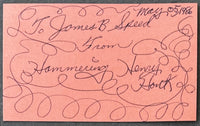 May 5, 1986
To James B. Speed
From
Hammering Henry